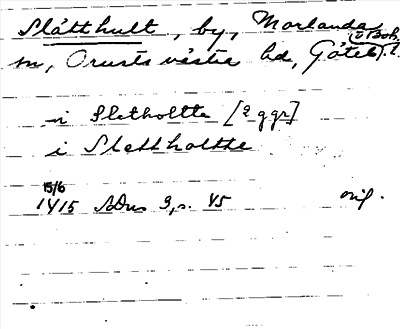 Slätthult, by, Morlanda
sn, Orusts västra hd, Göteb. o. Boh. l.
i Sletholtte [2 ggr]
i Sletthollthe
15/6
1415 SDns 3, s. 45 orig.